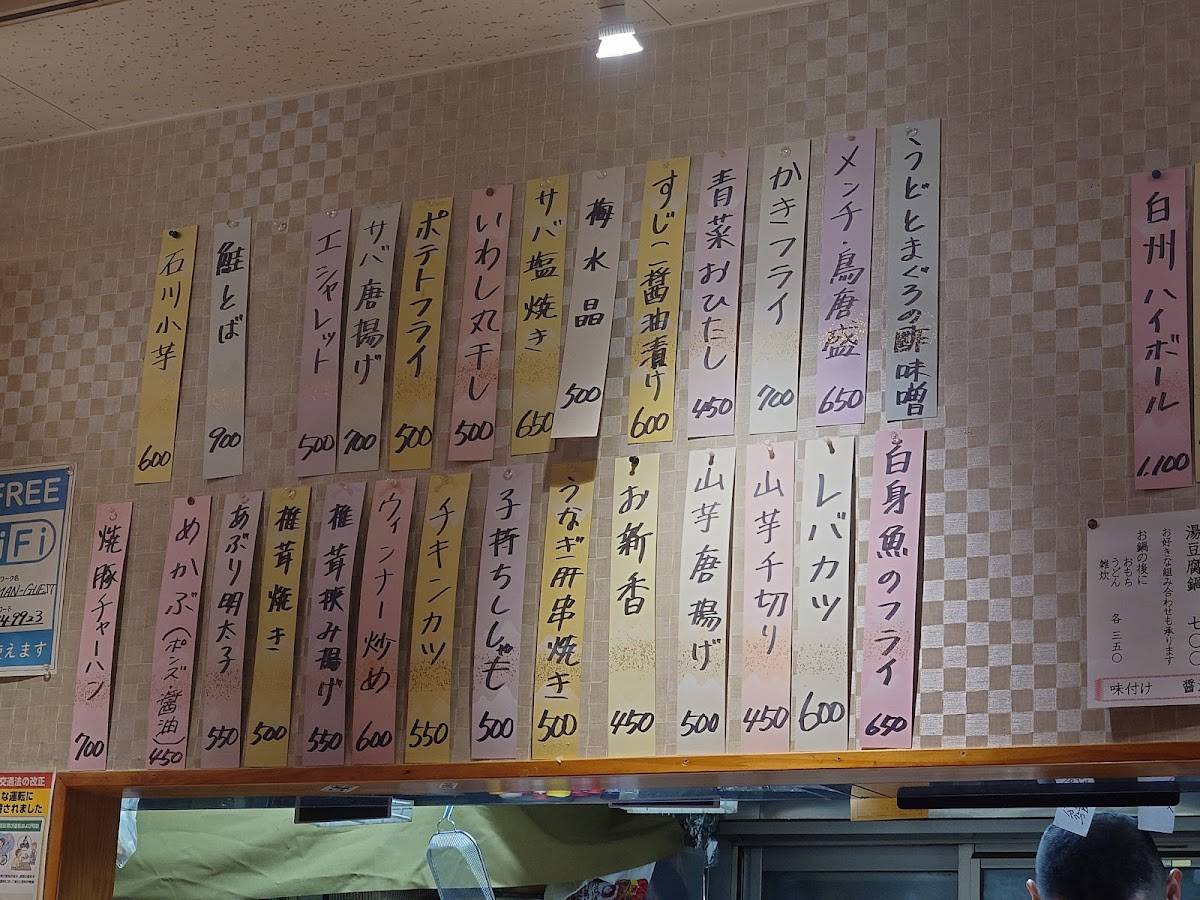 うどとまぐろの酢味噌
メンチ・鳥唐盛
650
かきフライ
700
青菜おひたし
450
すじこ醤油漬け
600
梅水晶
500
サバ塩焼き
650
いわし丸干し
500
ポテトフライ
500
サバ唐揚げ
700
エシャレット
500
鮭とば
900
石川小芋
600
白身魚のフライ
650
レバカツ
600
山芋千切り
450
山芋唐揚げ
500
お新香
450
うなぎ肝串焼き
500
子持ちししゃも
500
チキンカツ
550
ウィンナー炒め
600
椎茸挟み揚げ
550
椎茸焼き
500
あぶり明太子
550
めかぶ(ポンズ・醤油)
450
焼豚チャーハン
700
白州ハイボール
1.100
湯豆腐鍋 七〇〇
お好きな組み合わせも承ります
お鍋の後に
おもち
うどん
雑炊
各 三五〇
味付け
FREE
WiFi
使えます
交通法の改正